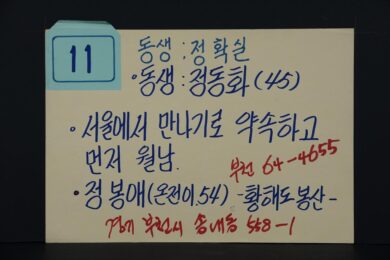 11
동생 : 정확실
·동생 : 정동화 (45)
· 서울에서 만나기로 약속하고
먼저 월남.
부천 64-4655
· 정봉애(온전이.54) -황해도봉산-
경기 부천시 송내동 558-1